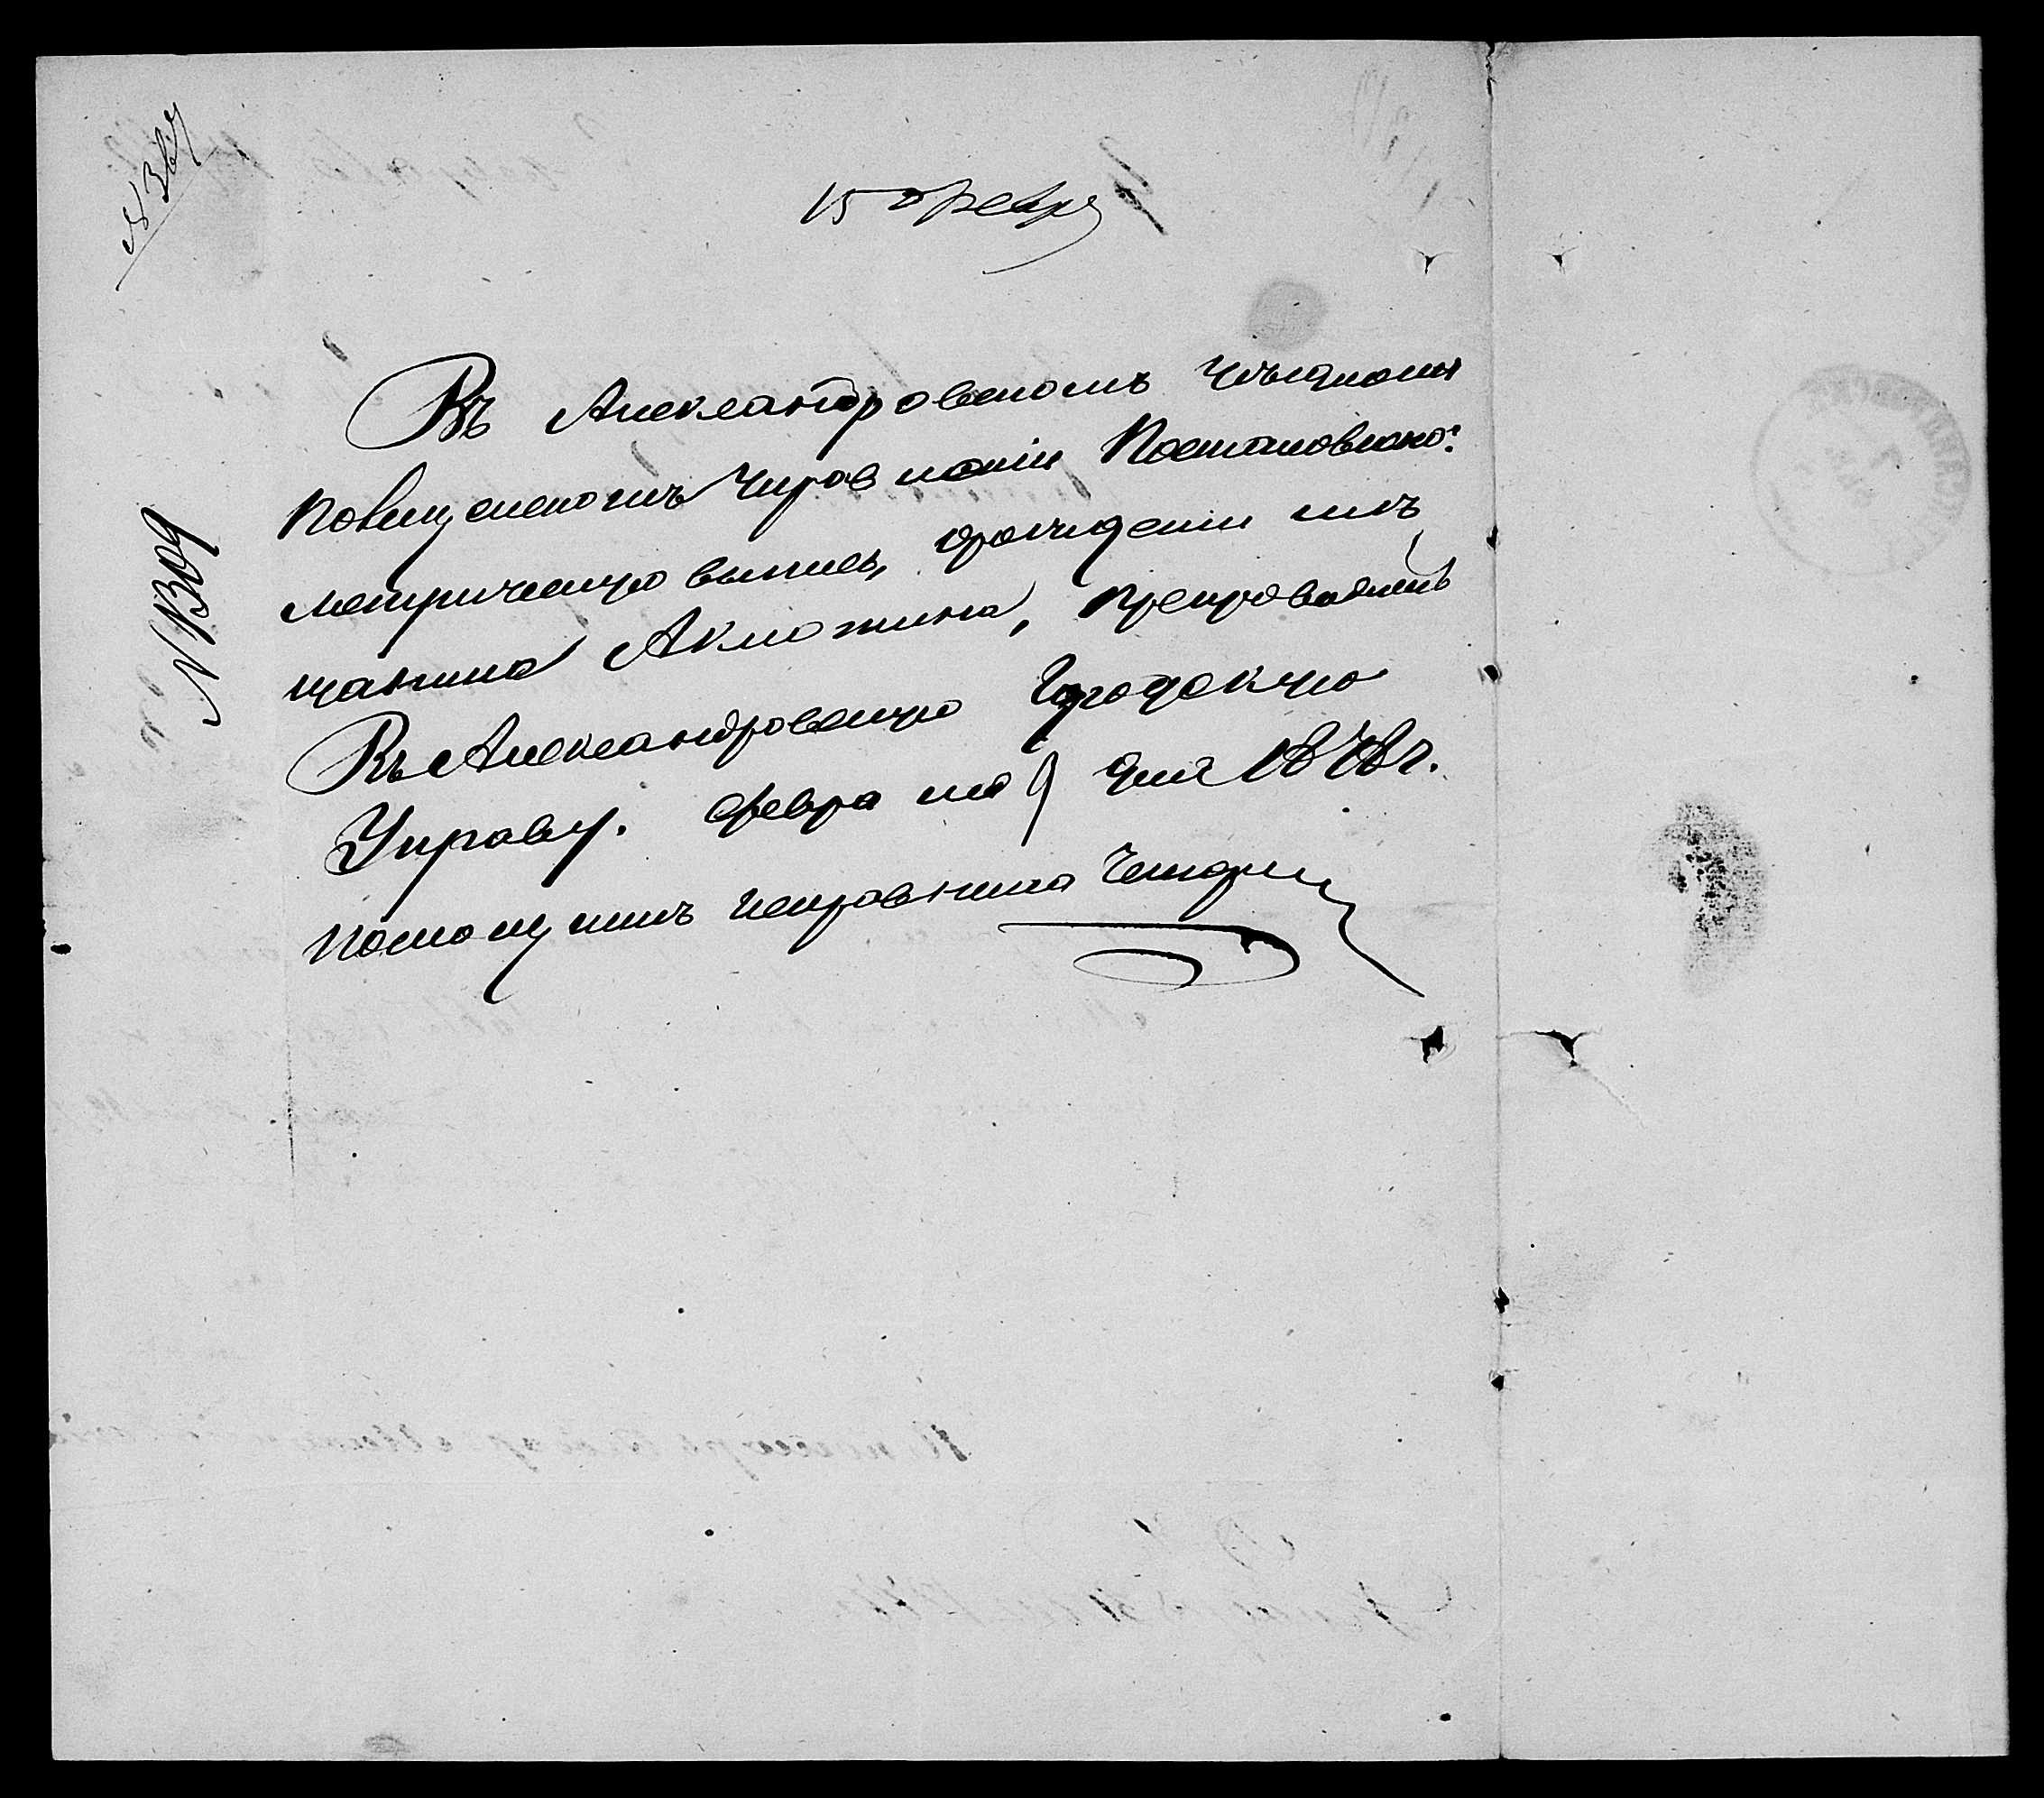 N 367
15 Февр
N 1309
Въ Александровскомъ Уѣздномъ
Полицейскомъ Управленіи Постановлено:
метрическую выпись, о рожденіи мѣ
щанина препроводить
Въ Александровскую Городскую
Управу. Февраля 9 дня 1878 г.
Помощникъ Исправника